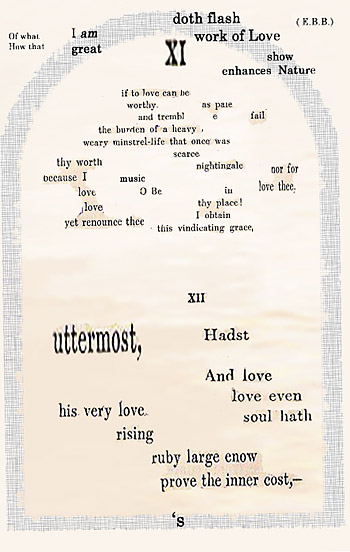 doth flash
( E.B.B.)
Of what I am work of Love
How that great
XI
show
enhances Nature
if to love can be
worthy. as pale
and trembl e fail
the burden of a heavy
weary minstrel-life that once was
scarce
thy worth nightingale nor for
because I music
love O Be in love thee.
love thy place!
yet renounce thee I obtain
this vindicating grace,
XII
uttermost, Hadst
And love
love even
his very love. soul hath
rising
ruby large enow
prove the inner cost,—
's